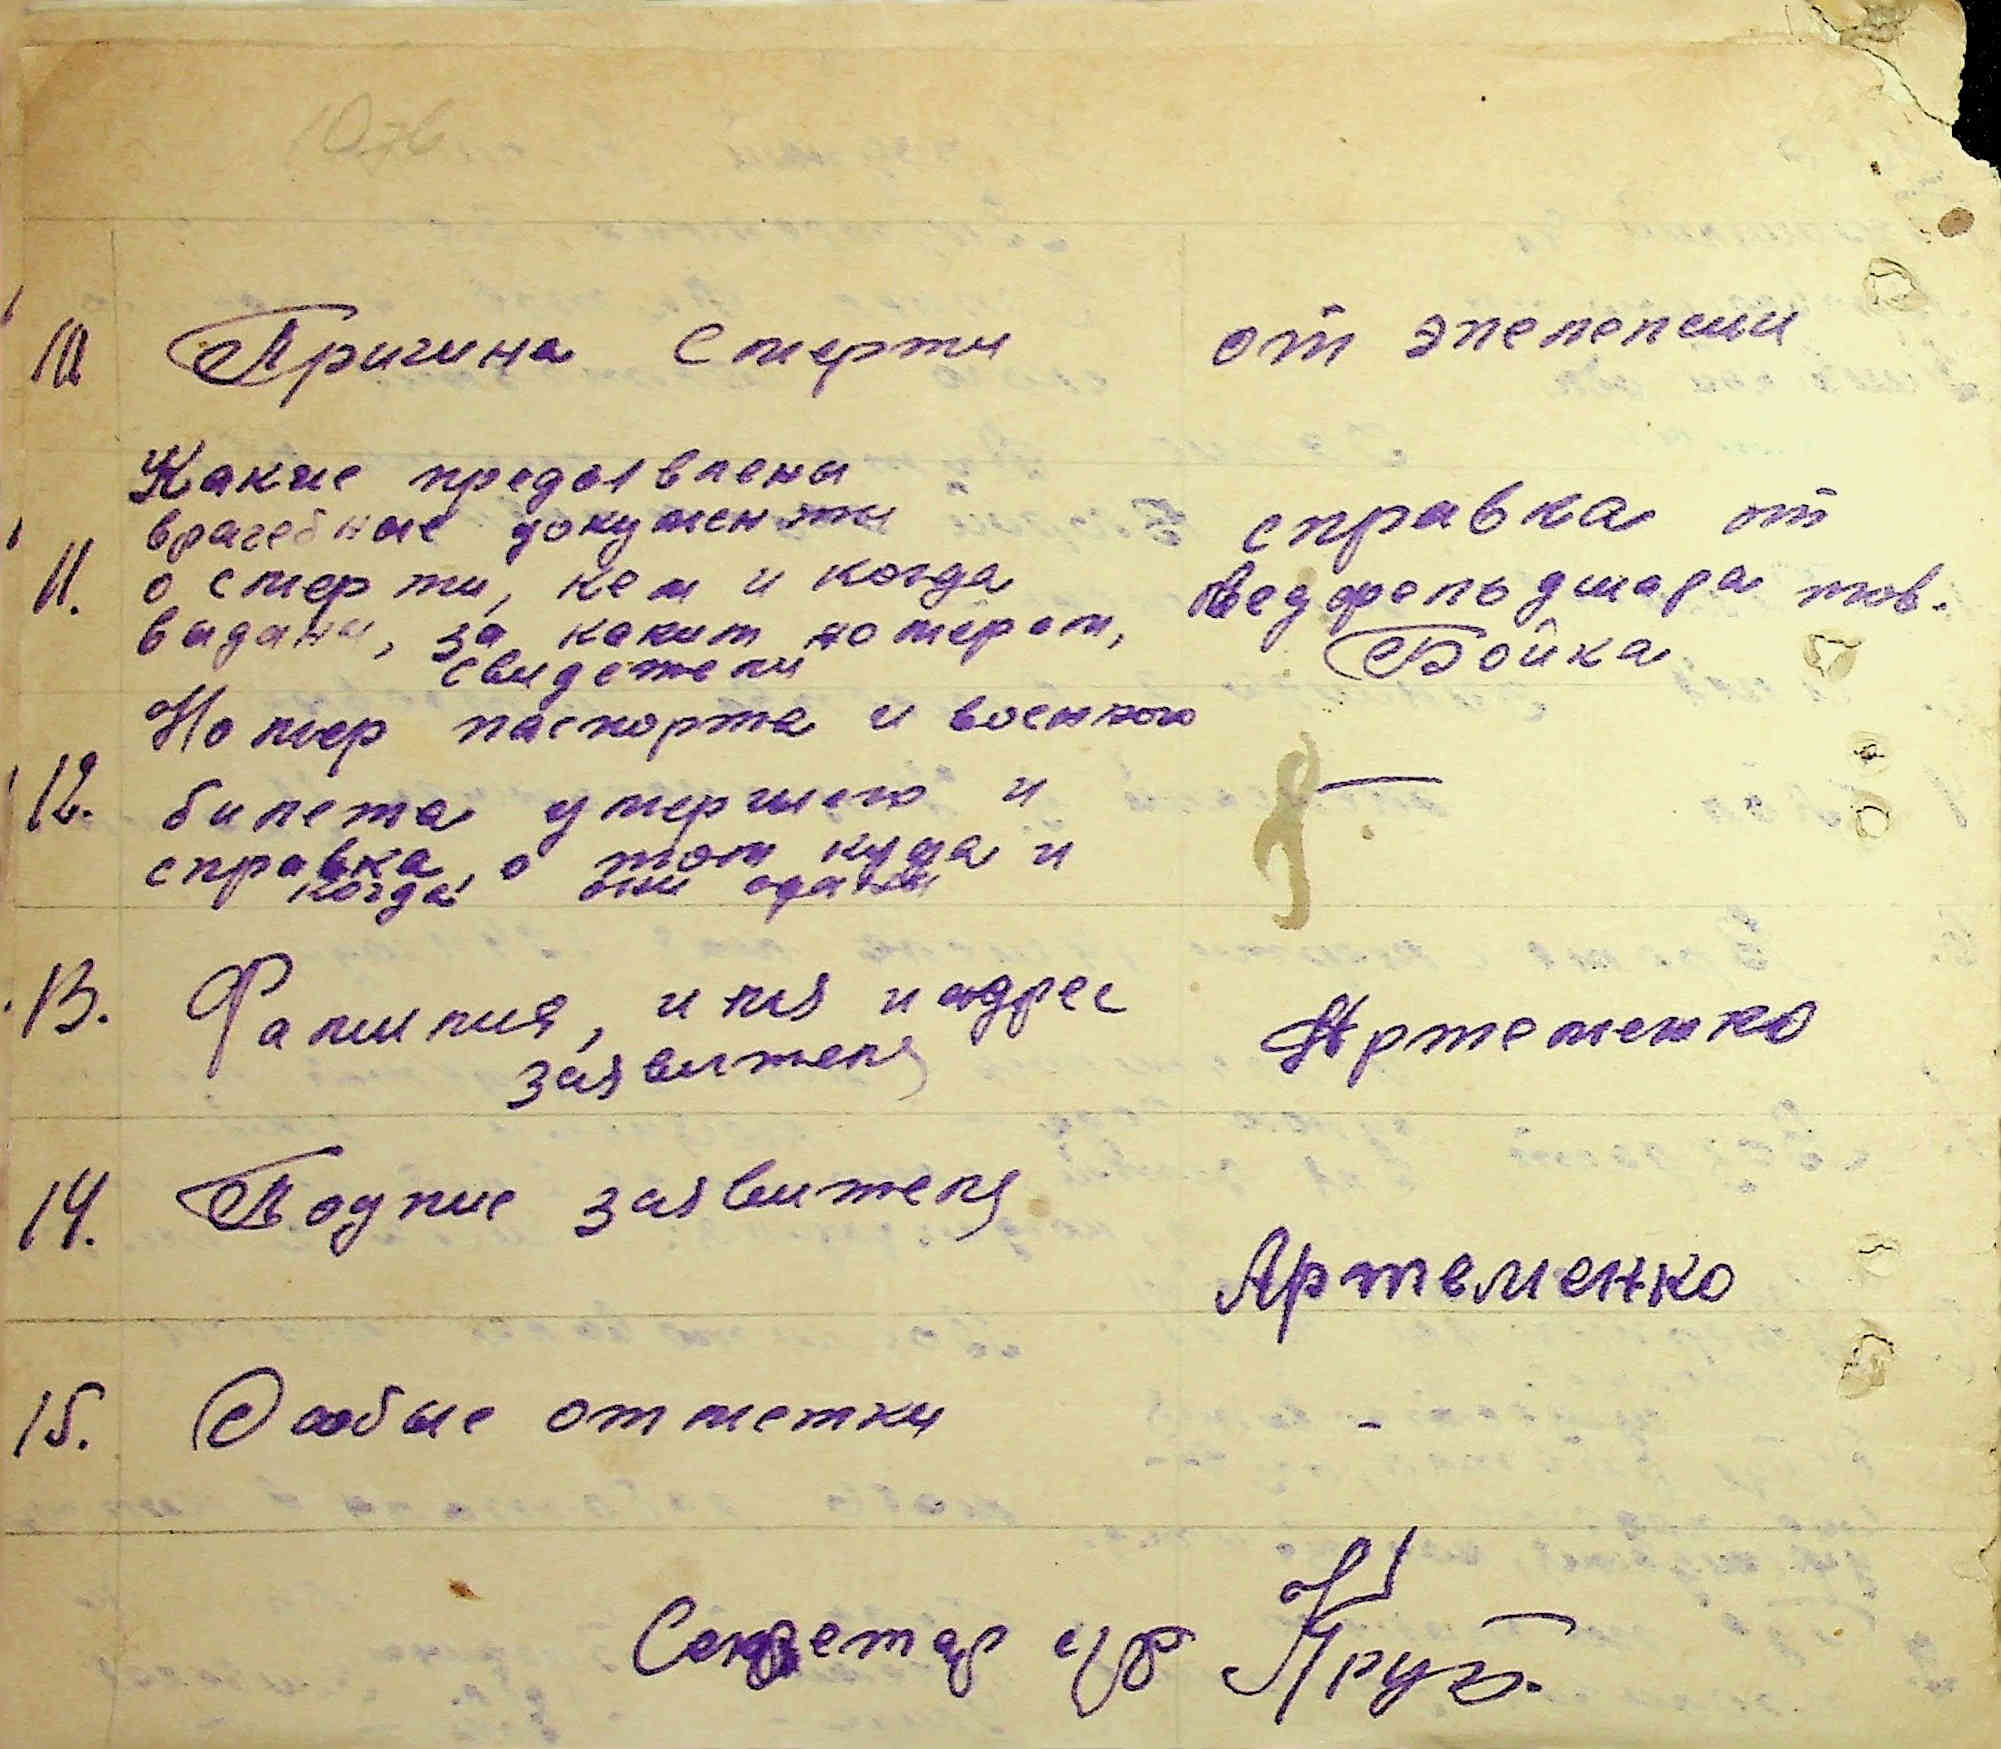 10 Причина смерти
от эпелепсии
11. Какие предъявлены
врачебные документы
о смерти, кем и когда
выданы, за каким номером,
свидетели
справка от
Ведфельдшара тов.
Бойка
12. Номер паспорта и военного
билета умершего и
справка о том куда и
когда они сданы
—
13. Фамилия, имя и адрес
заявителя
Артеменко
14. Подпис заявителя
Артеменко
15. Особые отметки
-
Секретар с/р